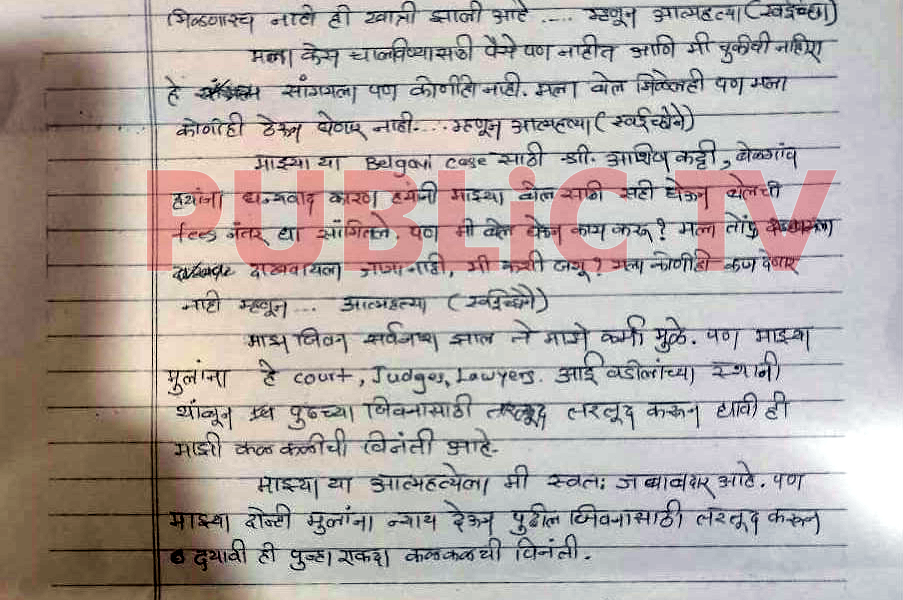 मिळणारच नाही ही खात्री झाली आहे ..... म्हणून आत्महत्या (स्वईच्छा)
मला केस चालविण्यासाठी पैसे पण नाहीत आणि मी चुकीची नाहीए
हे सांगायला पण कोणीही नाही. मला बेल मिळेलही पण मला
कोणीही ठेऊन घेणार नाही.... म्हणून आत्महत्या (स्वईच्छेने)
माझ्या या Belgavi case साठी श्री. आशिष कट्टी, बेळगांव
PUBLiC TV
हयांना धन्यवाद कारण हयांनी माझ्या बेल साठी सही घेऊन बेलची
fees नंतर द्या सांगितले पण मी बेल घेऊन काय करू? मला तोंड
दाखवायला जागा नाही, मी कशी जगू? मला कोणीही काम देणार
नाही म्हणून ... आत्महत्या (स्वईच्छेने)
माझ जिवन सर्वनाश झाल ते माझे कर्मा मुळे. पण माझ्या
मुलांना हे court, Judges, Lawyers. आई वडीलांच्या स्थानी
थांबून पुढच्या जिवनासाठी तरलूद करून द्यावी ही
माझी कळकळीची विनंती आहे.
माझ्या या आत्महत्येला मी स्वतः जबाबदार आहे. पण
माझ्या दोन्ही मुलांना न्याय देऊन पुढील जिवनासाठी तरलूद करून
दयावी ही पुन्हा एकदा कळकळची विनंती.